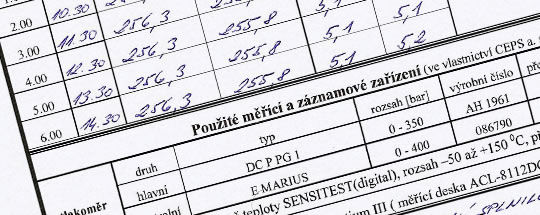 10.30
2.00 11.30 256,3 255,8 5,1 5,1
3.00 12.30 256,3 255,8 5,1 5,2
4.00 13.30 256,3 255,8
5.00 14.30 256,3
6.00
Použité měřící a záznamové zařízení (ve vlastnictví CEPS a.
druh typ rozsah [bar] výrobní číslo
hlavní DC P PG 1 0 - 350 AH 1961
E MARIUS 0 - 400 086790
teploty SENSITEST(digital), rozsah –50 až +150 °C, př
III ( měřící deska ACL-8112DG